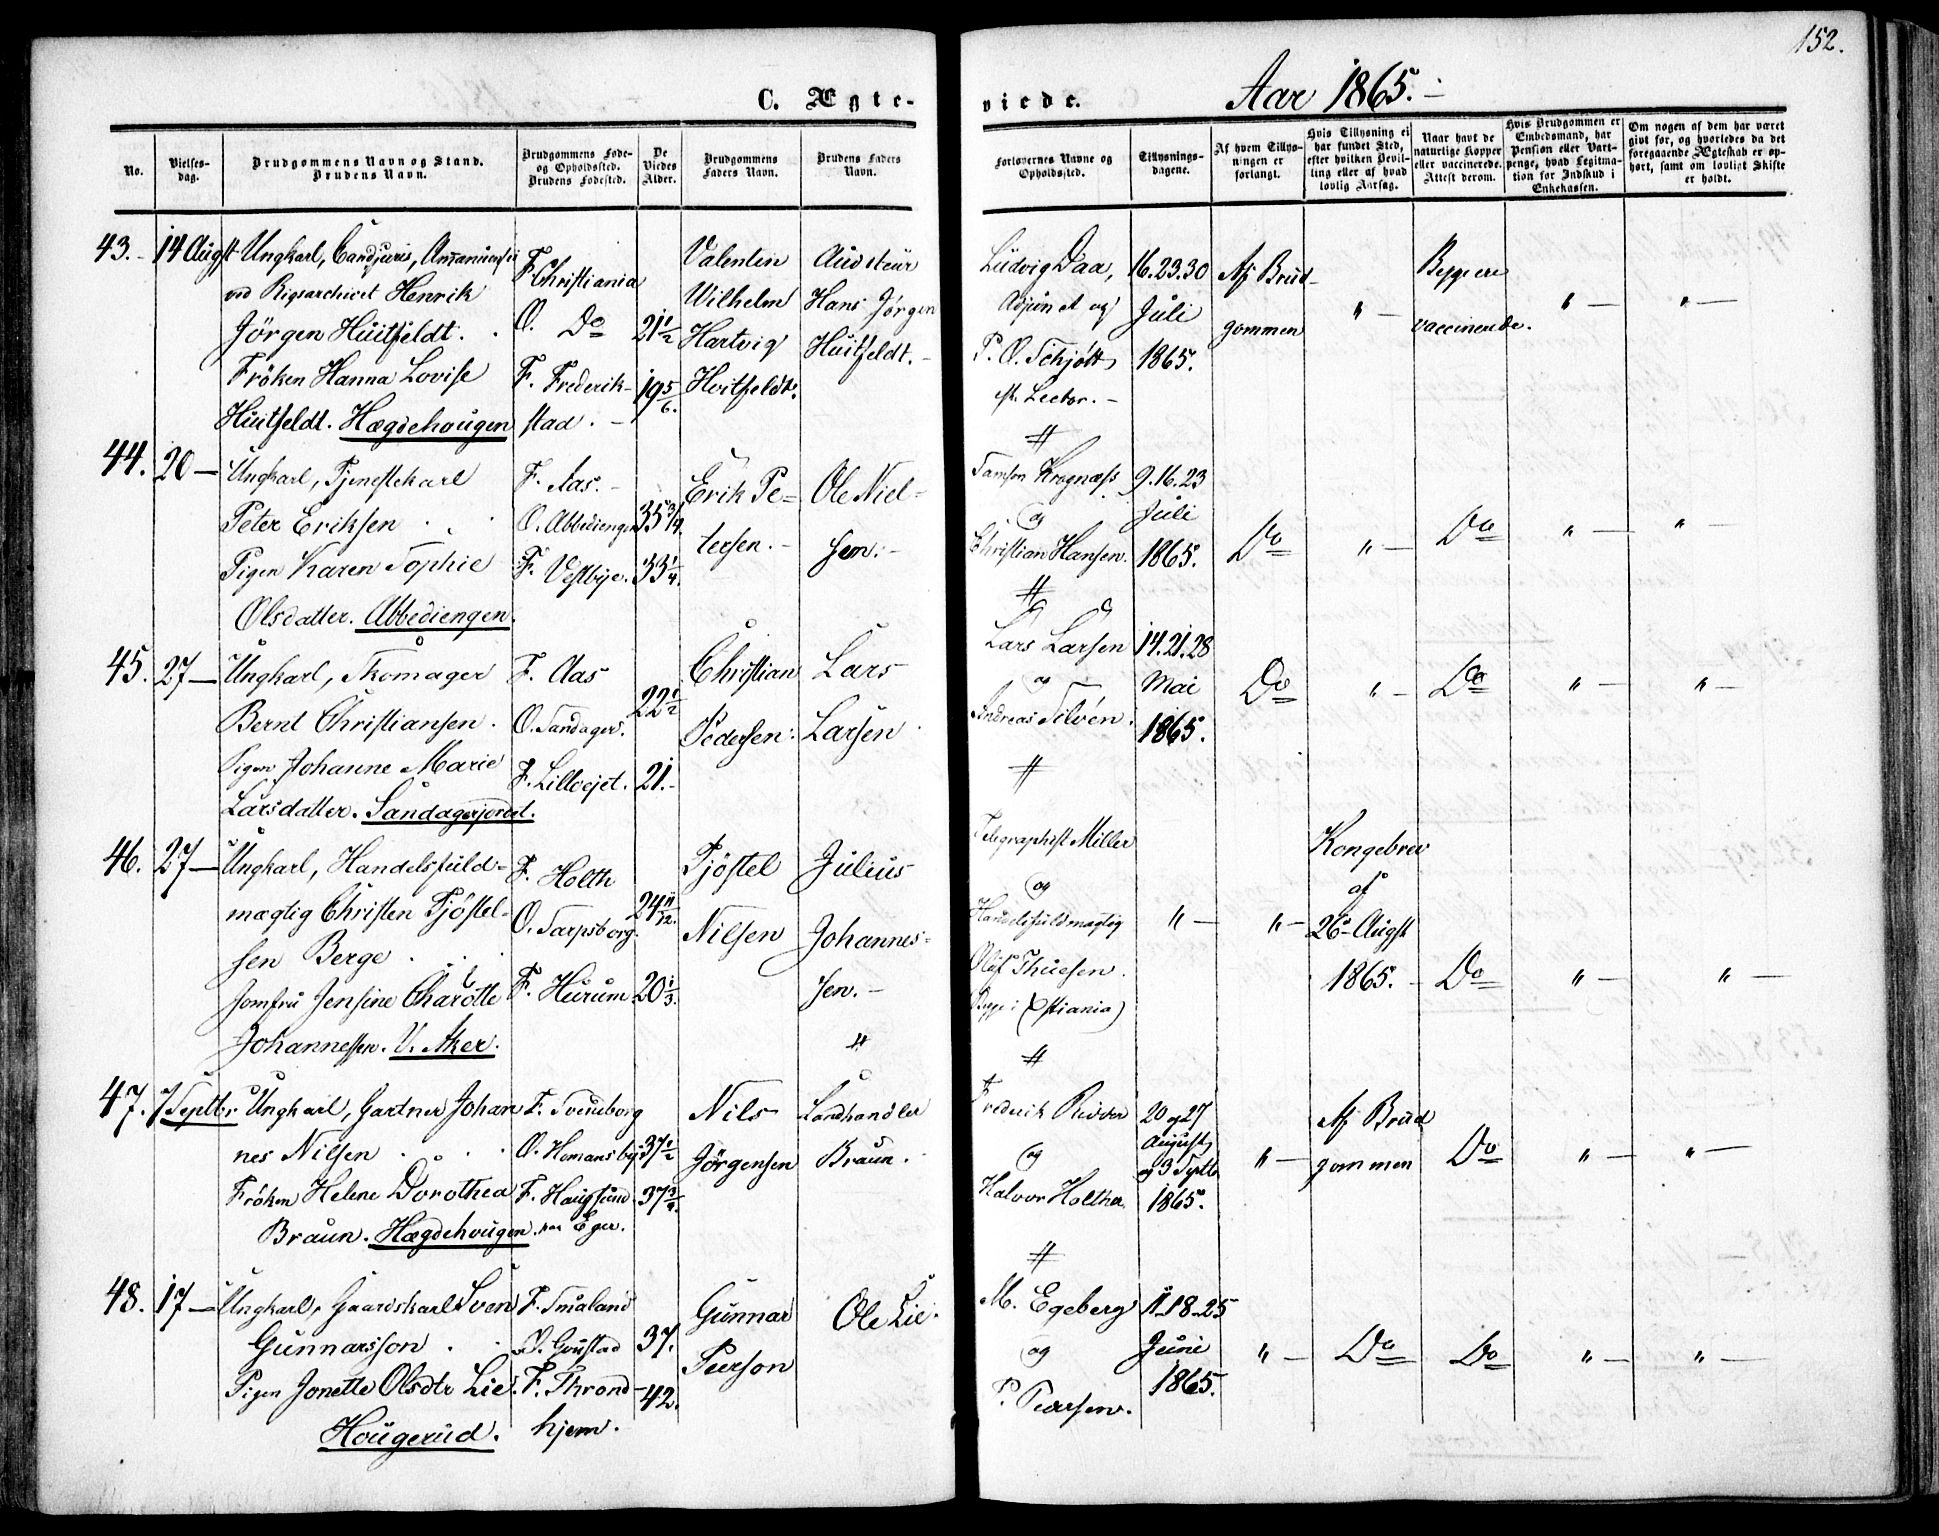 152.
C. Ægte-
viede.
Aar 1865.
No.
Vielses-
dag.
Brudgommens Navn og Stand.
Brudens Navn.
Brudgommens Føde-
og Opholdssted.
Brudens Fødested.
De
Viedes
Alder.
Brudgommens
Faders Navn.
Brudens Faders
Navn.
Forlovernes Navne og
Opholdssted.
Tillysnings-
dagene.
Af hvem Tillys-
ningen er
forlangt.
Hvis Tillysning ei
har fundet Sted,
efter hvilken Bevil-
ling eller af hvad
lovlig Aarsag.
Naar havt de
naturlige Kopper
eller vaccinerede.
Attest derom.
Hvis Brudgommen er
Embedsmand, har
Pension eller Vart-
penge, hvad Legitima-
tion for Indskud i
Enkekassen.
Om nogen af dem har været
givt før, og hvorledes da det
foregaaende Ægteskab er op-
hørt, samt om lovligt Skifte
er holdt.
43. 14 Augst
Ungkarl, Cand juris, Amanuensis
ved Rigsarchivet Henrik
Jörgen Huitfeldt.
Fröken Hanna Lovise
Huitfeldt. Hægdehougen
F. Christiania
O. Do
F. Frederik-
stad.
21 1/2
19 5/6.
Valentin
Wilhelm
Hartvig
Hvitfeldt.
Auditeur
Hans Jørgen
Huitfeldt.
Ludvig Daa,
Adjunct og
P. O. Schjött
Lector.
16.23.30
Juli
1865.
Af Brud-
gommen
" —
Begge ere
vaccinerede.
" —
" —
44. 20 —
Ungkarl, Tjenestekarl
Peter Eriksen
Pigen Karen Sophie
Olsdatter. Abbediengen.
F. Aas.
O. Abbediengen
F. Vestbye.
35 3/4.
33 1/4.
Erik Pe=
tersen.
Ole Niel=
sen.
Samson Krognæss
og
Christian Hansen.
9.16.23
Juli
1865.
Do
" —
Do
" —
" —
45. 27 —
Ungkarl, Skomager
Bernt Christiansen.
Pigen Johanne Marie
Larsdatter. Sandagerjordet.
F. Aas
O. Sandager.
F. Lilloejet.
22 1/2
21.
Christian
Pedersen.
Lars
Larsen
Lars Larsen
og
Andreas Silvén.
14.21.28
Mai
1865.
Do
" —
Do
" —
" —
46. 27 —
Ungkarl, Handelsfuld=
mægtig Christen Tjöstel-
sen Berge
Jomfru Jensine Charlotte
Johannessen. V. Aker.
F. Holth
O. Sarpsborg.
F. Hurum.
24 11/12.
20 1/3.
Tjöstel
Nilsen
Julius
Johannes=
sen.
Telegraphist Miller
og
Handelsfuldmægtig
Olaf Thuesen.
Begge i (Xstiania)
" —
" —
Kongebrev
af
26 Augst
1865.
Do
" —
" —
47. 7 Septbr
Ungkarl, Gartner Johan
nes Nilsen
Fröken Helene Dorothea
Braun. Hægdehougen.
F. Svenborg
O. Homansby
F. Haugsund
paa Eger.
37 1/2
37 3/4.
Nils
Jörgensen
Landhandler
Braun.
Frederik
og
Halvor Holther
20 og 27
August
og 3 Septbr
1865.
" —
Af Brud
gommen
Do
" —
" —
48. 17 —
Ungkarl, Gaardskarl Sven
Gunnarsson
Pigen Jonette Olsdtr Lie.
Hougerud.
F. Smaland
O. Goustad
F. Thrond-
hjem.
37.
42.
Gunnar
Peerson
Ole Lie.
M. Egeberg
og
P. Pedersen.
11-18-25
Juni
1865.
" —
Do
Do
" —
" —